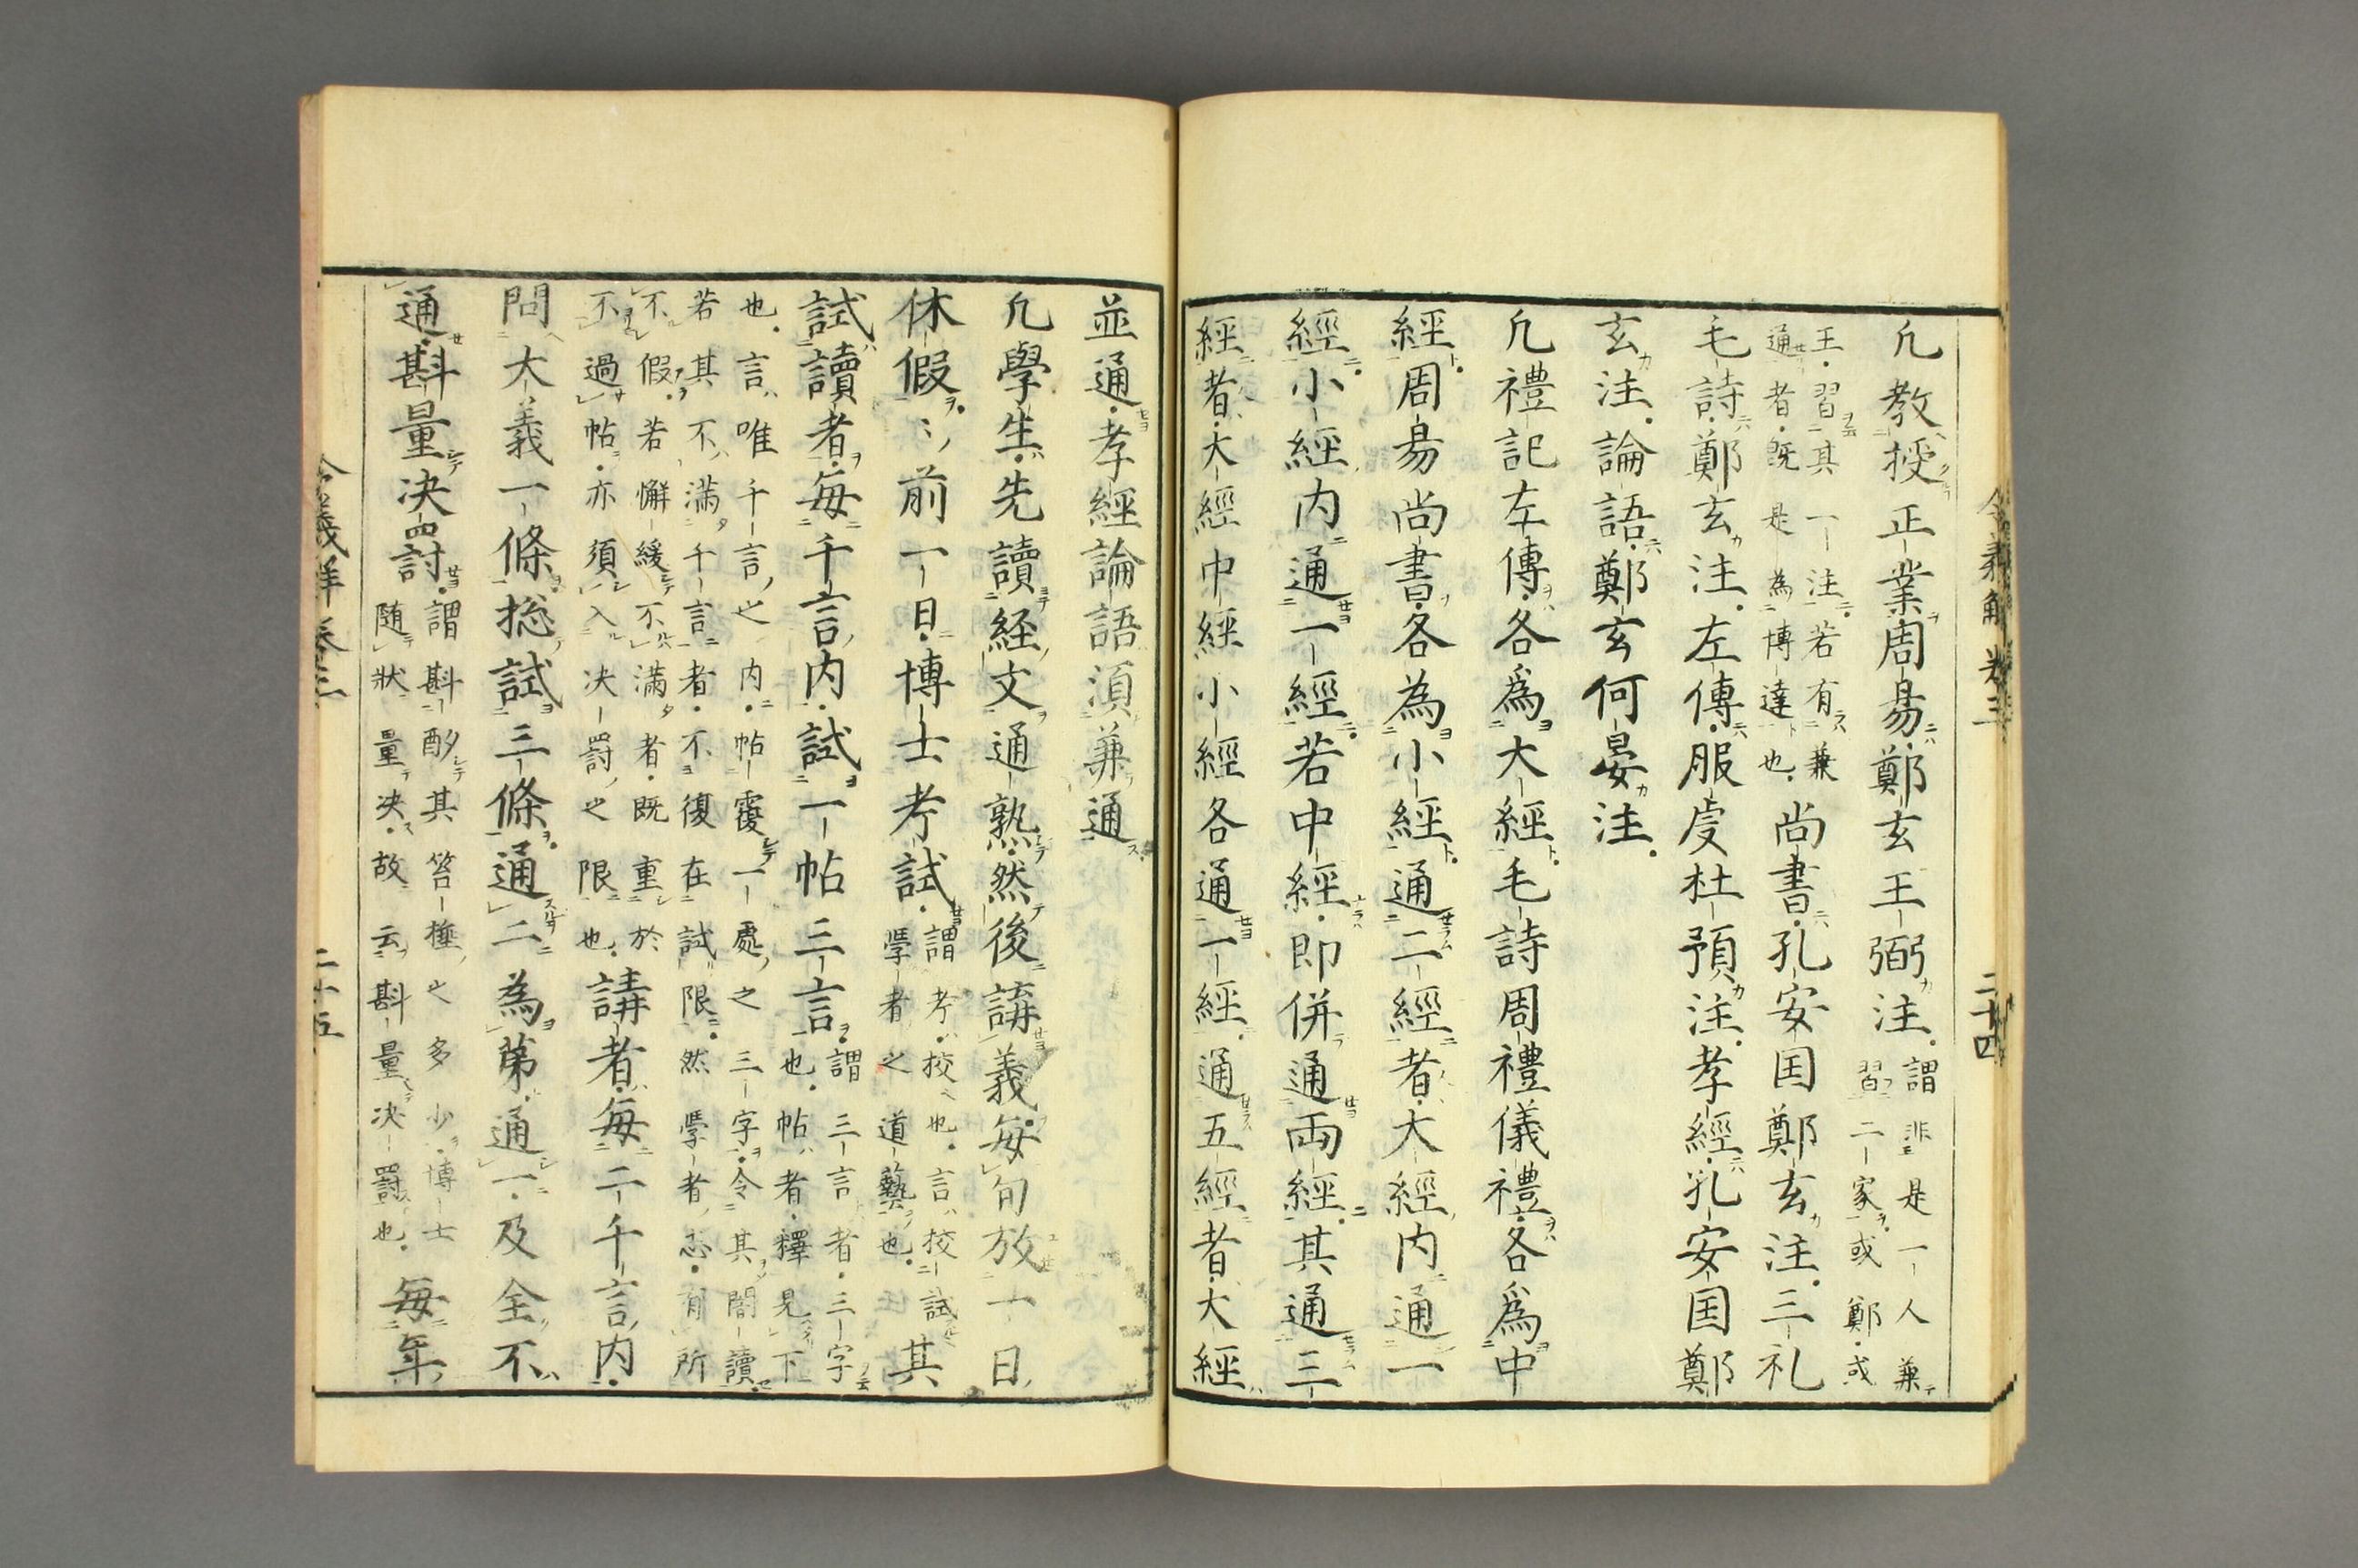 令義解 卷三 二十四
凢教授正業周昜鄭玄王弼注謂非是一人兼
習二家或鄭或
王習其一注若有兼
通者既是為博達也尚書孔安国鄭玄注三礼
毛詩鄭玄注左傳服虔杜預注孝經孔安国鄭
玄注論語鄭玄何晏注
凢禮記左傳各爲大經毛詩周禮儀禮各爲中
經周昜尚書各為小經通二經者大經内通一
經小經内通一經若中經即併通両經其通三
經者大經中經小經各通一經通五經者大經
並通孝經論語湏兼通
凢學生先讀経文通熟然後講義毎旬放一日
休假〻前一日博士考試謂考挍也言挍試
斈者之道藝也其
試讀者毎千言内試一帖三言謂三言者三字
也帖者釋見下
也言唯千言之内帖覆一處之三字令其闇讀
若其不滿千言者不復在試限然斈者志有所
不假若懈緩不滿者既重於
不過帖亦須入决罰之限也講者毎二千言内
問大義一條捴試三條通二為苐通一及全不
通斟量决罰謂斟酌其笞棰之多少博士
随狀量决故云斟量决罰也毎年
令義解 卷三 二十五